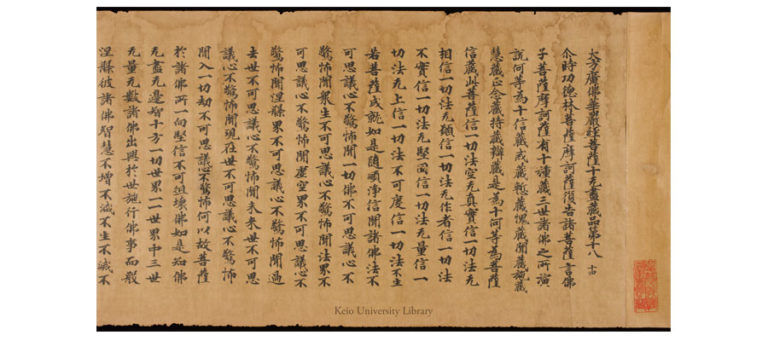 大方廣佛華嚴經菩薩十无盡藏品第十八
尒時功德林菩薩摩訶薩復告諸菩薩言佛
子菩薩摩訶薩有十種藏三世諸佛之所演
說何等為十信藏戒藏慙藏愧藏聞藏施藏
慧藏正念藏持藏辯藏是為十何等為菩薩
信藏此菩薩信一切法空无真實信一切法无
相信一切法无願信一切法无作者信一切法
不實信一切法无堅固信一切法无量信一
切法无上信一切法不可度信一切法不生
若菩薩成就如是隨順淨信聞諸佛法不
可思議心不驚怖聞一切佛不可思議心不
驚怖聞衆生不可思議心不驚怖聞法界不
可思議心不驚怖聞虛空界不可思議心不
驚怖聞涅槃界不可思議心不驚怖聞過
去世不可思議心不驚怖聞未來世不可思
議心不驚怖聞現在世不可思議心不驚怖
聞入一切劫不可思議心不驚怖何以故菩薩
於諸佛所一向堅信不可沮壞佛如是知佛
无盡无邊智十方一切世界一一世界中三世
无量无數諸佛出興於世施行佛事而般
涅槃彼諸佛智慧不增不減不生不滅不
Keio University Library